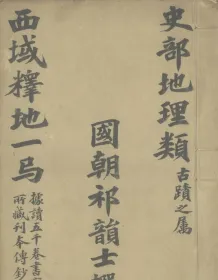 史部地理類 古蹟之屬
國朝祁韻士譔
西域釋地一弓
據讀五千卷書
所藏刊本傳鈔